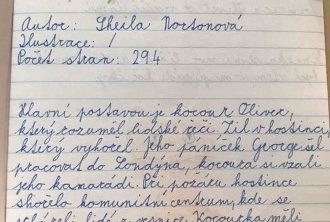 Autor: Sheila Nortonová
Ilustrace: /
Počet stran: 294
Hlavní postavou je kocour Oliver,
který rozuměl lidské řeči. Žil v hostinci
který vyhořel. Jeho páníček George šel
pracovat do Londýna, kocoura si vzali
jeho kamarádi. Při požáru hostince
shořelo komunitní centrum, kde se
scházeli lidé z vesnice. Kocourka měli